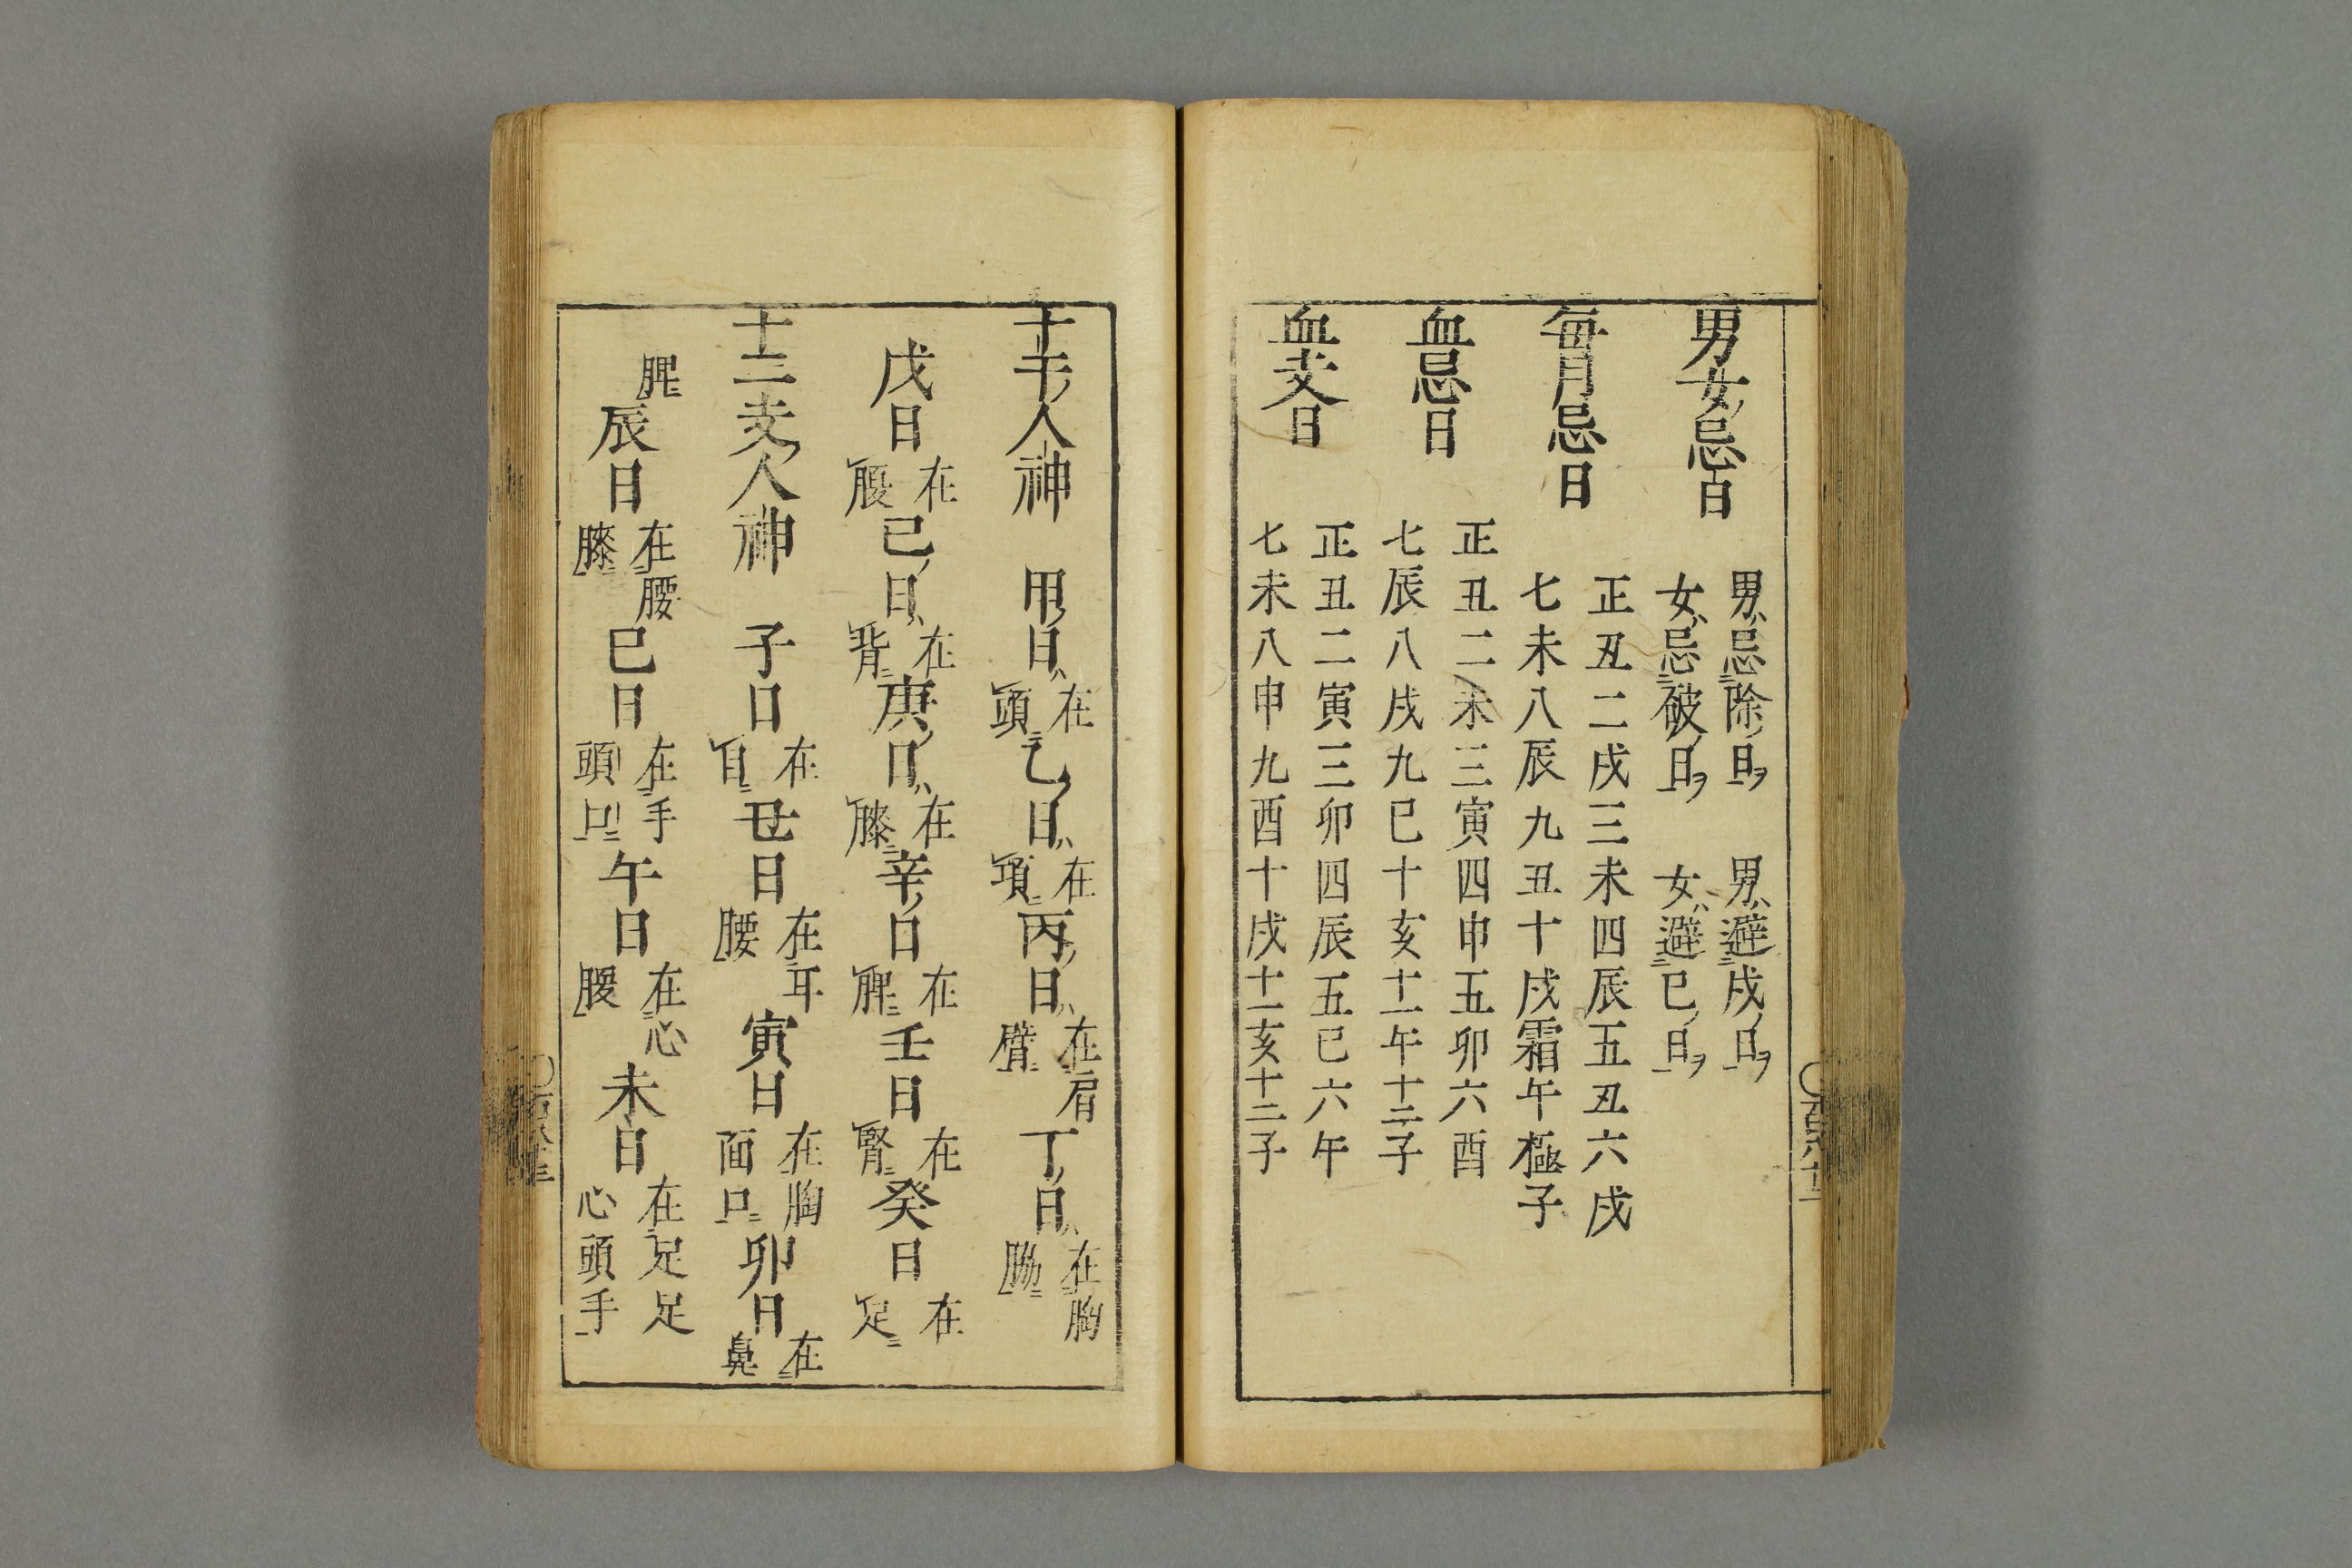 男女忌日
男忌除日ヲ 男避戌日ヲ
女忌破日ヲ 女避巳日ヲ
毎月忌日
正丑二戌三未四辰五丑六戌
七未八辰九丑十戌霜午極子
血忌日
正丑二未三寅四申五卯六酉
七辰八戌九巳十亥十一午十二子
血支日
正丑二寅三卯四辰五巳六午
七未八申九酉十戌十一亥十二子
十干人神 甲日在頭 乙日在項 丙日在肩臂 丁日在胸脇
戊日在腹 己日在背 庚日在膝 辛日在脾 壬日在腎 癸日在足
十二支人神 子日在目 丑日在耳腰 寅日在胸面口 卯日在鼻
脾 辰日在腰膝 巳日在手頭口 午日在心腹 未日在足足心頭手